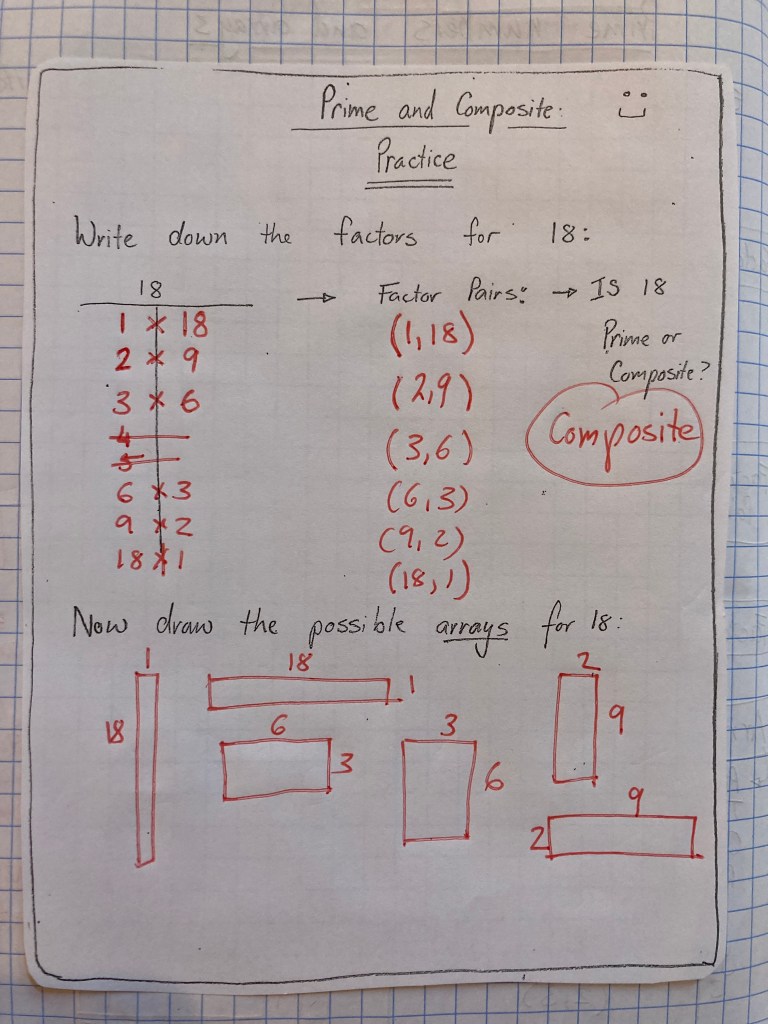 Prime and Composite:
Practice
Write down the factors for 18:
18 → Factor Pairs: → IS 18
Prime or
Composite?
1 × 18
2 × 9
3 × 6
4
5
6 × 3
9 × 2
18 × 1
(1,18)
(2,9)
(3,6)
(6,3)
(9,2)
(18,1)
Composite
Now draw the possible arrays for 18:
1
18
18
1
6
3
3
6
2
9
9
2